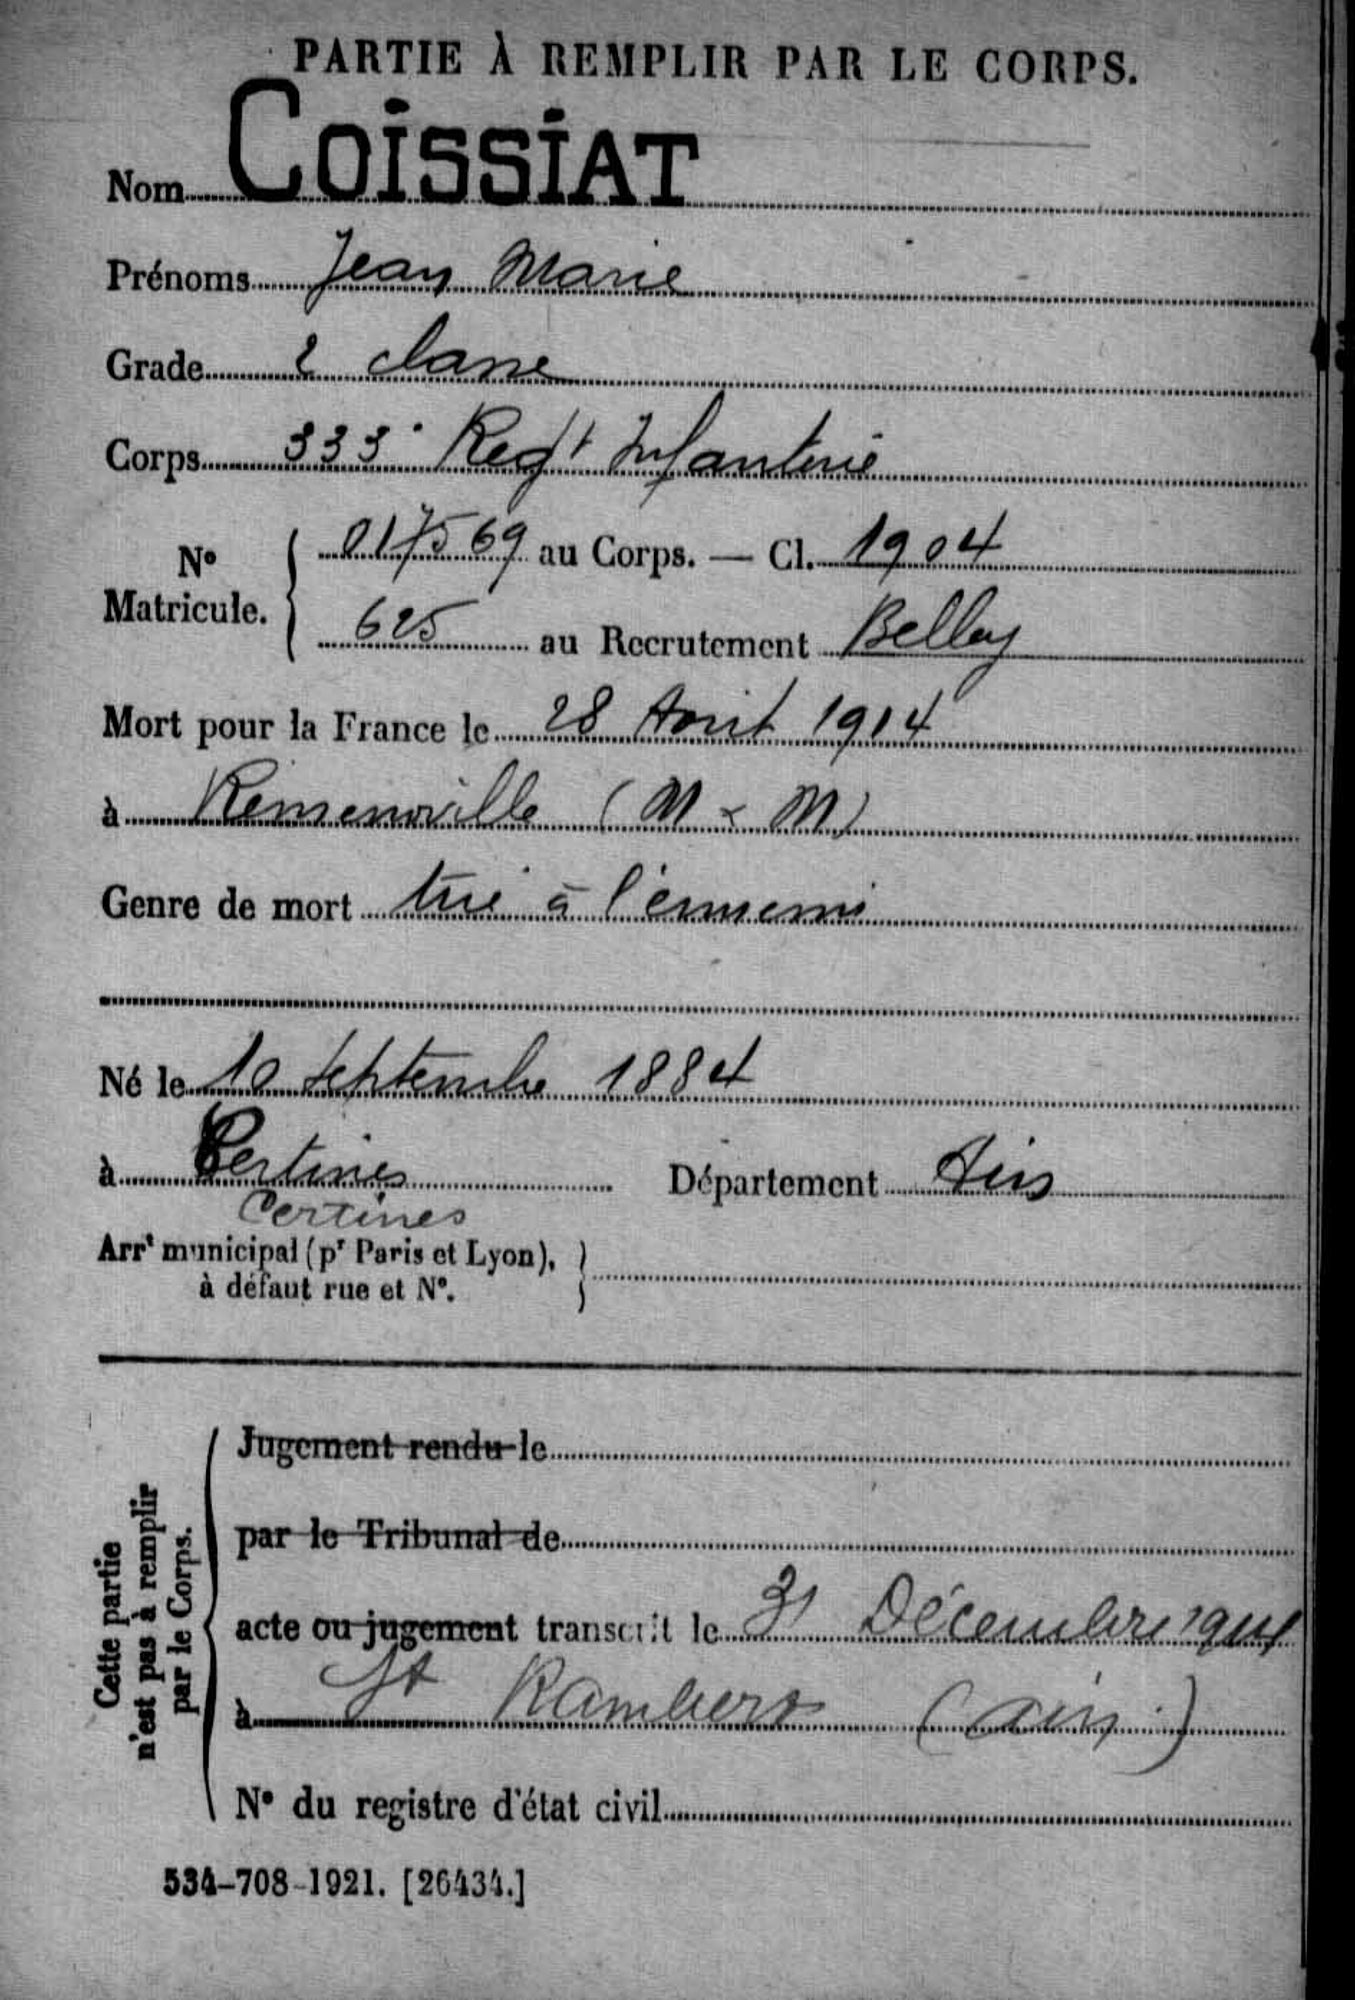 PARTIE À REMPLIR PAR LE CORPS.
Nom COISSIAT
Prénoms Jean Marie
Grade 2 classe
Corps 333e Regt Infanterie
No Matricule. 017569 au Corps. — Cl. 1904
625 au Recrutement Belley
Mort pour la France le 28 Août 1914
à Remenoville (M & M)
Genre de mort tué à l'ennemi
Né le 10 Septembre 1884
à Certines Département Ain
Certines
Arrt municipal (pr Paris et Lyon),
à défaut rue et No.
Cette partie
n'est pas à remplir
par le Corps.
Jugement rendu le
par le Tribunal de
acte ou jugement transcrit le 31 Décembre 1914
à St Rambert (Ain)
No du registre d'état civil
534-708-1921. [26434.]